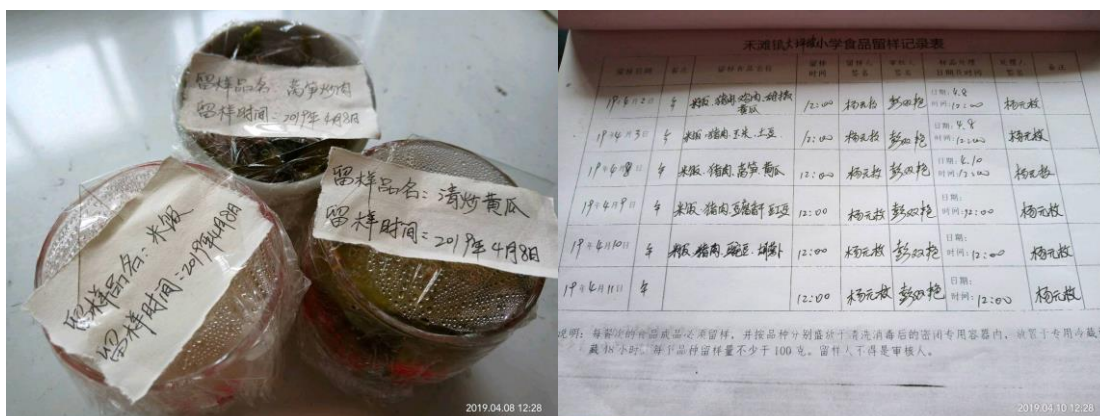 留样品名：莴笋炒肉
留样时间：2019年4月8日
留样品名：清炒黄瓜
留样时间：2019年4月8日
留样品名：米饭
留样时间：2019年4月8日
2019.04.08 12:28
小学食品留样记录表
留样日期 餐次 留样食品名称 留样时间 留样人签名 审核人签名 样品处理日期及时间 处理人签名 备注
19年4月2日 午 米饭、猪肉 12:00 杨元枚 彭双艳 日期:4.8 时间:12:00 杨元枚
19年4月3日 午 米饭、猪肉、玉米、土豆 12:00 杨元枚 彭双艳 日期:4.8 时间:12:00 杨元枚
19年4月8日 午 米饭、猪肉、莴笋、黄瓜 12:00 杨元枚 彭双艳 日期:4.10 时间:12:00 杨元枚
19年4月9日 午 米饭、猪肉 12:00 杨元枚 彭双艳 日期: 时间:12:00 杨元枚
19年4月10日 午 米饭、猪肉、豌豆 12:00 杨元枚 彭双艳 日期: 时间:12:00 杨元枚
19年4月11日 午 12:00 杨元枚 彭双艳 日期: 时间:12:00 杨元枚
说明：每餐次的食品成品必须留样，并按品种分别盛放于清洗消毒后的密闭专用容器内，放置于专用冷藏
藏48小时 每个品种留样量不少于100克。留样人不得是审核人。
2019.04.10 12:28